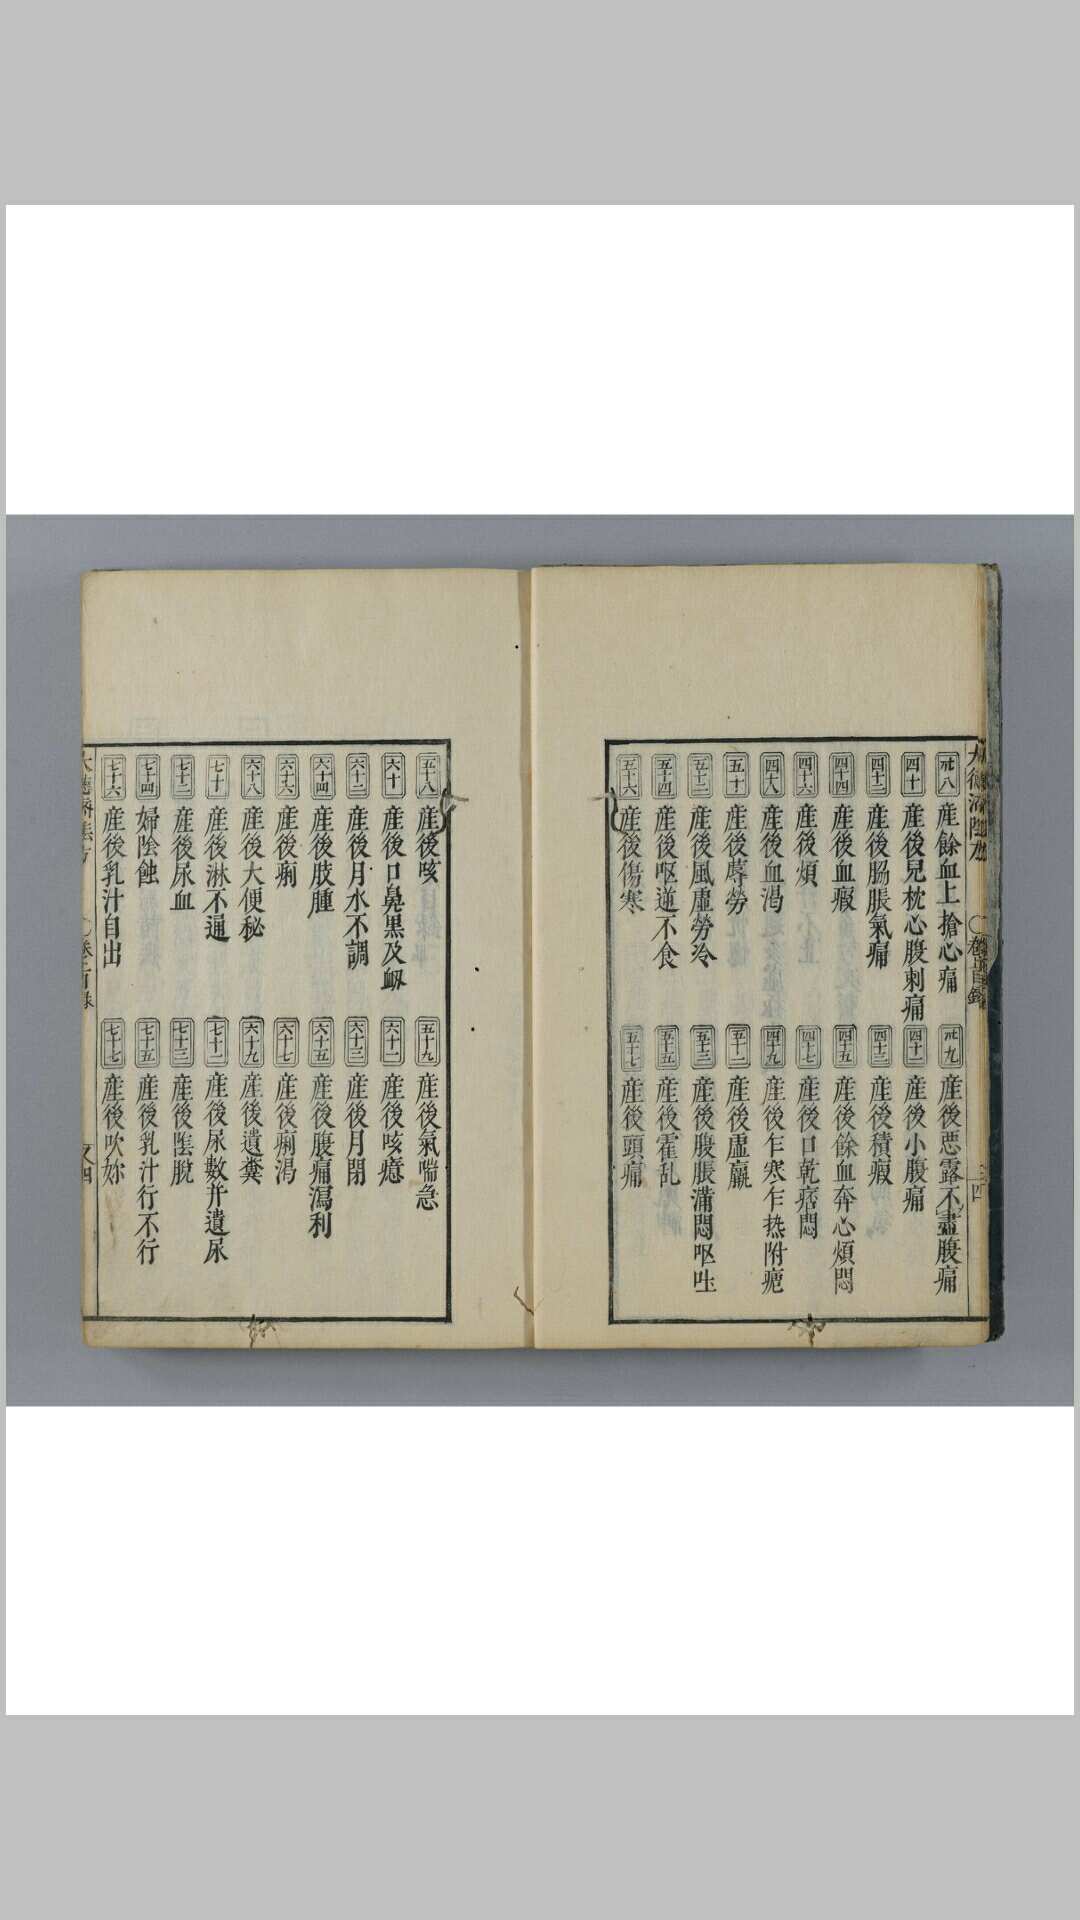 卅八 產餘血上搶心痛
卅九 產後惡露不盡腹痛
四十 產後兒枕心腹刺痛
四十一 產後小腹痛
四十二 產後腸脹氣痛
四十三 產後積瘕
四十四 產後血瘕
四十五 產後餘血奔心煩悶
四十六 產後煩
四十七 產後口乾痞悶
四十八 產後血渴
四十九 產後乍寒乍热附瘧
五十 產後蓐勞
五十一 產後虛羸
五十二 產後風虛勞冷
五十三 產後腹脹滿悶呕吐
五十四 產後呕逆不食
五十五 產後霍乱
五十六 產後傷寒
五十七 產後頭痛
五十八 產後咳
五十九 產後氣喘急
六十 產後口鼻黒及衂
六十一 產後咳癔
六十二 產後月水不調
六十三 產後月閉
六十四 產後肢腫
六十五 產後腹痛瀉利
六十六 產後痢
六十七 產後痢渴
六十八 產後大便秘
六十九 產後遺糞
七十 產後淋不通
七十一 產後尿數并遺尿
七十二 產後尿血
七十三 產後陰脫
七十四 婦陰蝕
七十五 產後乳汁行不行
七十六 產後乳汁自出
七十七 產後吹妳
又四